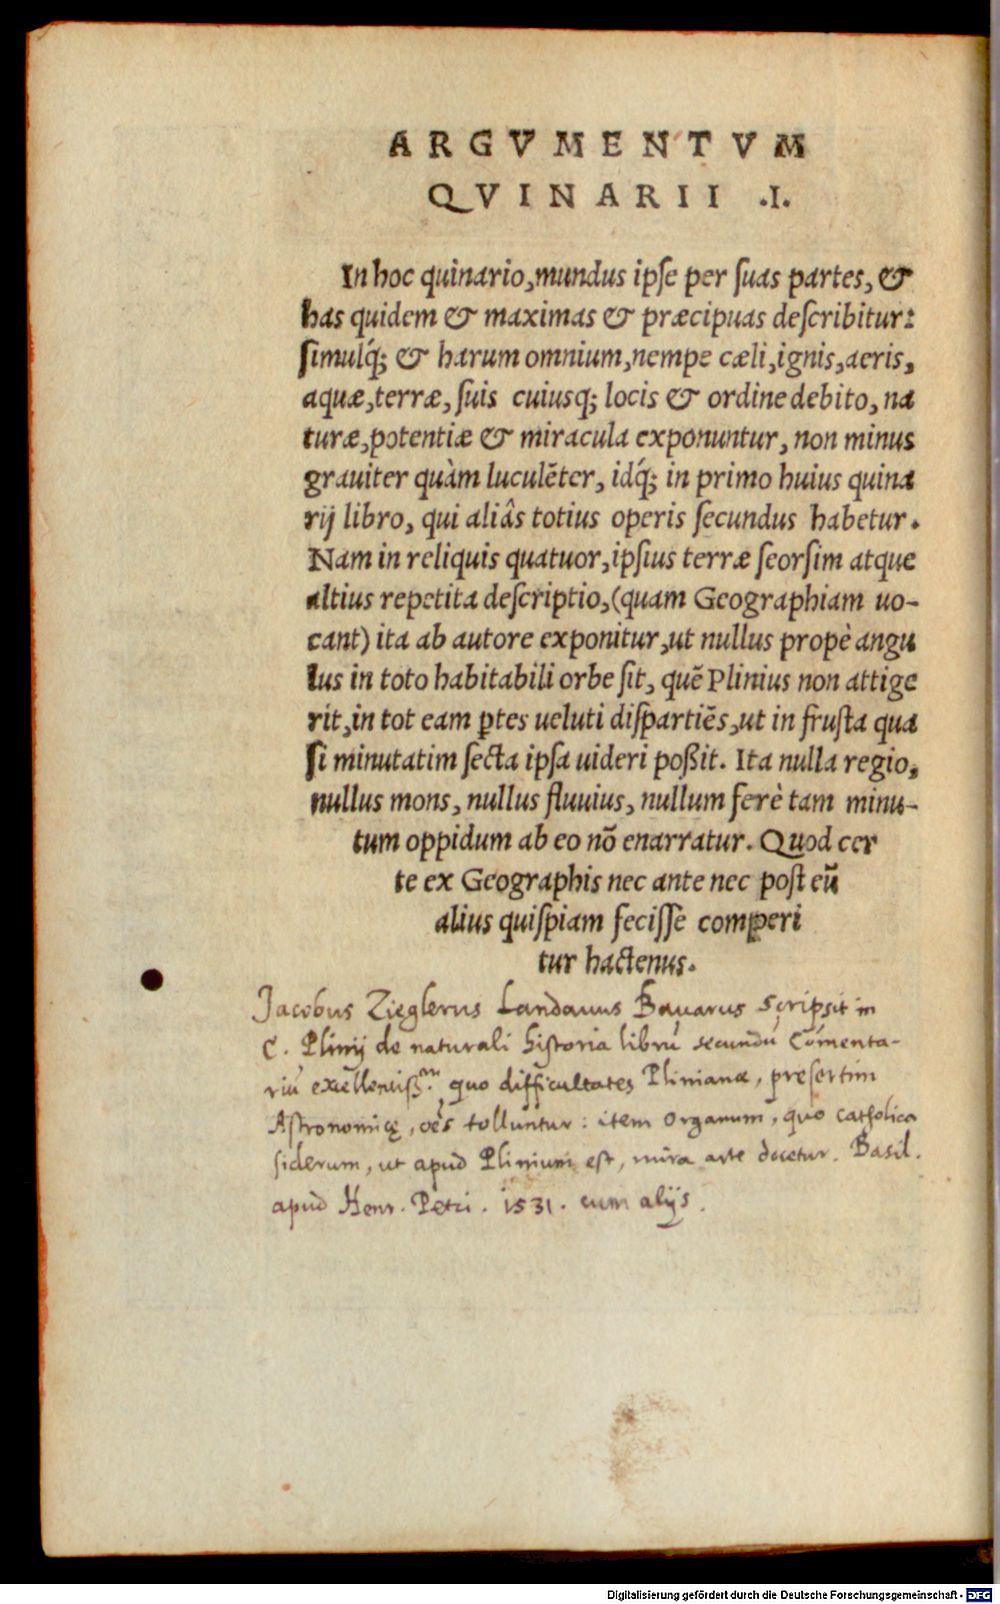 ARGVMENTVM
QVINARII .I.
In hoc quinario, mundus ipſe per ſuas partes, &
has quidem & maximas & præcipuas deſcribitur:
ſimulq́; & harum omnium, nempe cæli, ignis, aeris,
aquæ, terræ, ſuis cuiusq; locis & ordine debito, na
turæ, potentiæ & miracula exponuntur, non minus
grauiter quàm luculẽter, idq́; in primo huius quina
rij libro, qui aliâs totius operis ſecundus habetur.
Nam in reliquis quatuor, ipſius terræ ſeorſim atque
altius repetita deſcriptio, (quam Geographiam uo-
cant) ita ab autore exponitur, ut nullus propè angu
lus in toto habitabili orbe ſit, quẽ Plinius non attige
rit, in tot eam ꝑtes ueluti diſpartiẽs, ut in fruſta qua
ſi minutatim ſecta ipſa uideri poßit. Ita nulla regio,
nullus mons, nullus fluuius, nullum ferè tam minu-
tum oppidum ab eo nõ enarratur. Quod cer
te ex Geographis nec ante nec poſt eũ
alius quiſpiam feciſſe comperi
tur hactenus.
Jacobus Zieglerus Landauus Bauarus scripsit in
C. Plinij de naturali historia librũ secundũ Cõmenta-
riũ excellentiß.m quo difficultates Plinianæ, presertim
Astronomicę, oẽs tolluntur: item organum, quo catholica
siderum, ut apud Plinium est, mira arte docetur. Basil.
apud Henr. Petri. 1531. cum alijs.
Digitalisierung gefördert durch die Deutsche Forschungsgemeinschaft - DFG